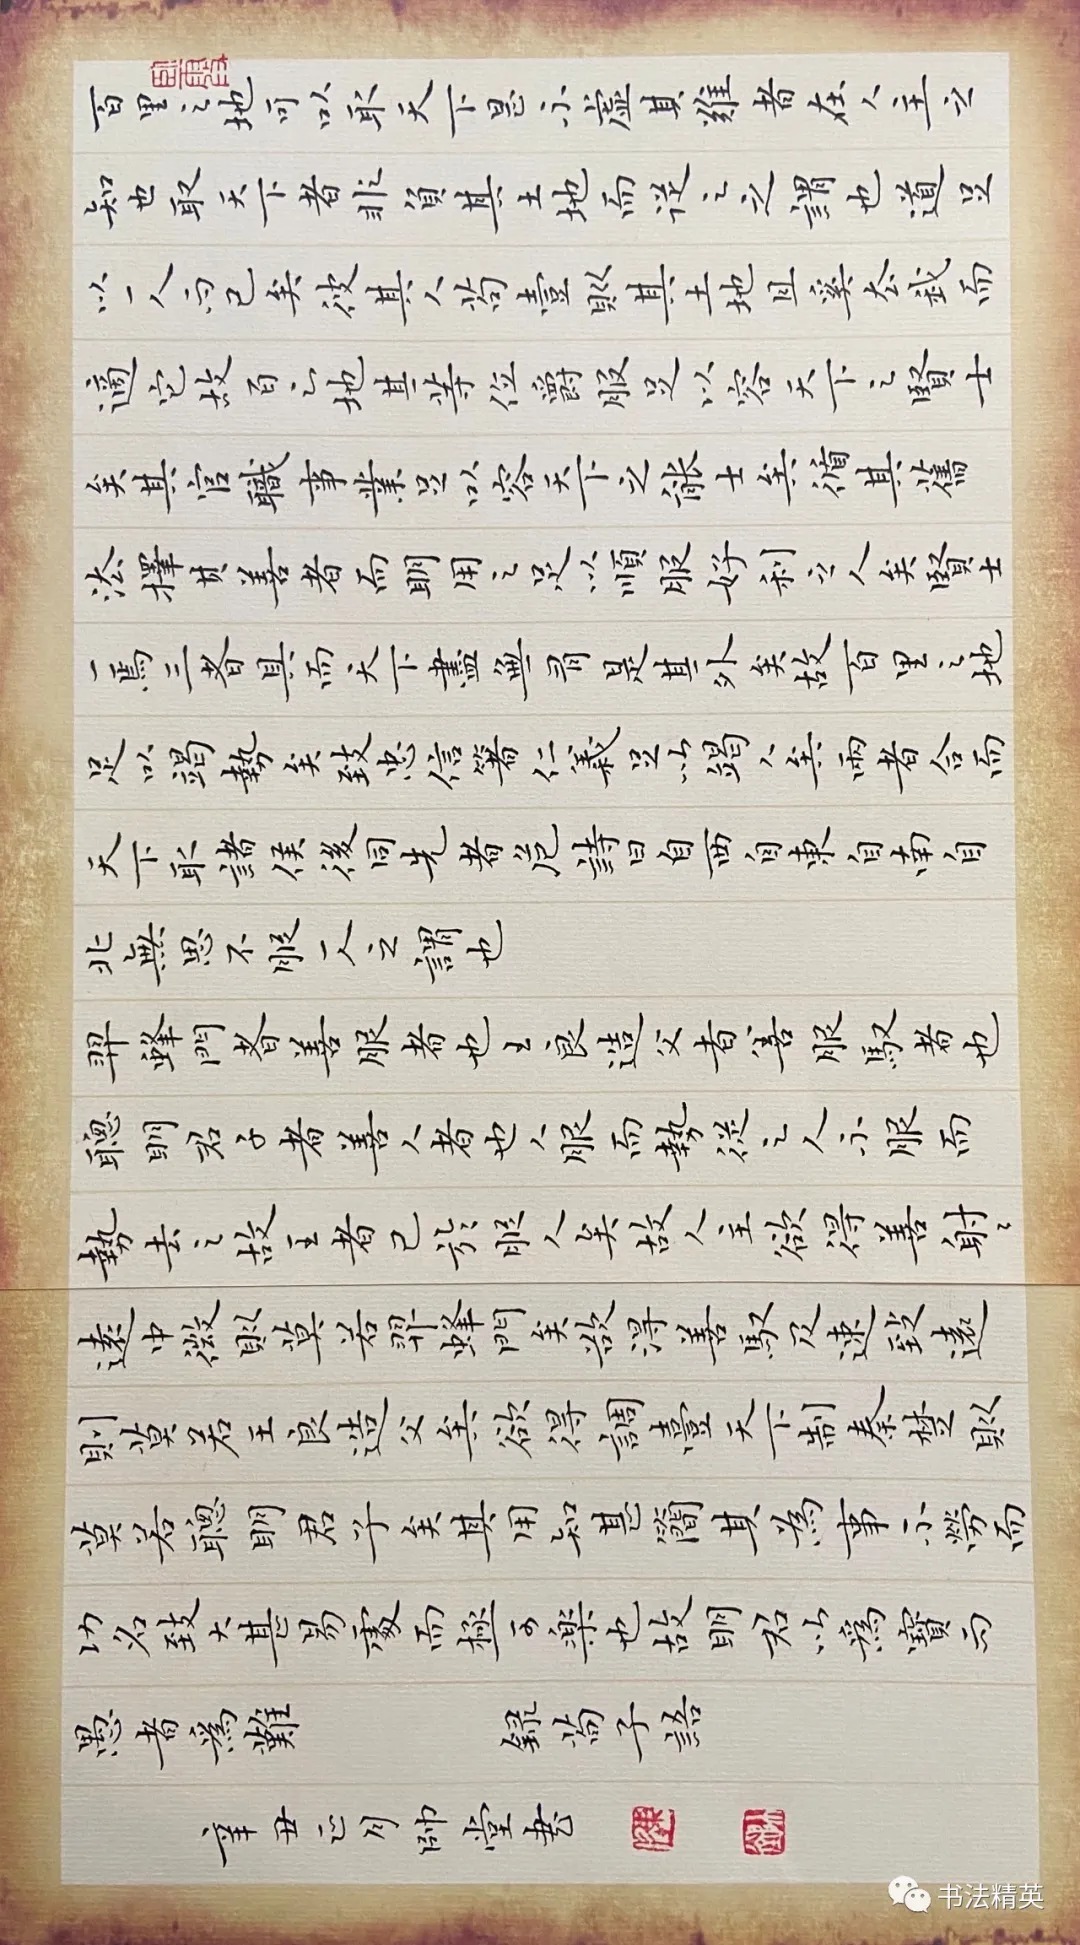 百里之地可以取天下是不虛其難者在人主之
知也取天下者非負其土地而從之之謂也道足
以一人而已矣彼其人苟壹則其土地且奚去我而
適它故百之地其等位爵服足以容天下之賢士
矣其官職事業足以容天下之能士矣循其舊
法擇其善者而明用之足以順服好利之人矣賢士
一焉三者具而天下盡無有是其外矣故百里之地
足以竭勢矣致忠信箸仁義足以竭人矣兩者合而
天下取諸侯後同先者危詩曰自西自東自南自
北無思不服一人之謂也
羿蜂門者善服者也王良造父者善服馭者也
聰明君子者善人者也人服而勢從之人不服而
勢去之故王者已於服人矣故人主欲得善射々
遠中微則莫若羿蜂門矣欲得善馭及速致遠
則莫若王良造父矣欲得調壹天下制秦楚則
莫若聰明君子矣其用知甚簡其為事不勞而
功名致大甚易處而極可樂也故明君以為寶而
愚者為難 錄荀子語
辛丑正月帥堂書
书法精英